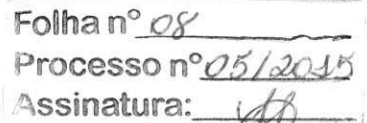 Folha n° 08
Processo n° 05/2015
Assinatura: